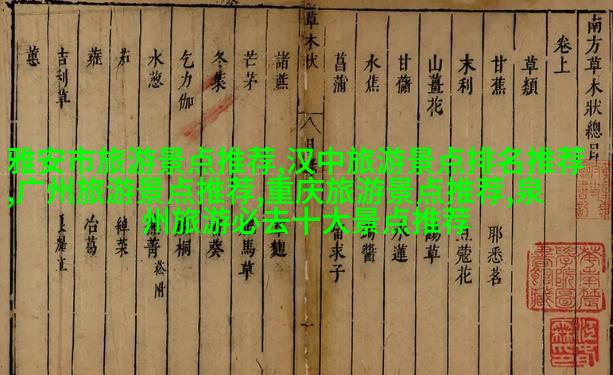 南方草木狀總目
卷上
草類
甘蕉
耶悉茗
末利
蔻花
山薑花
草
甘藷
水蓮
水蕉
醬
菖蒲
留求子
草木狀
諸蔗
麴
芒茅
馬草
冬葉
葵
乞力伽
桐
水葱
菁 菘附
茄
綽菜
蕹
冶葛
吉利草
蕙
雅安市旅游景点推荐,汉中旅游景点排名推荐
,广州旅游景点推荐,重庆旅游景点推荐,泉
州旅游必去十大景点推荐